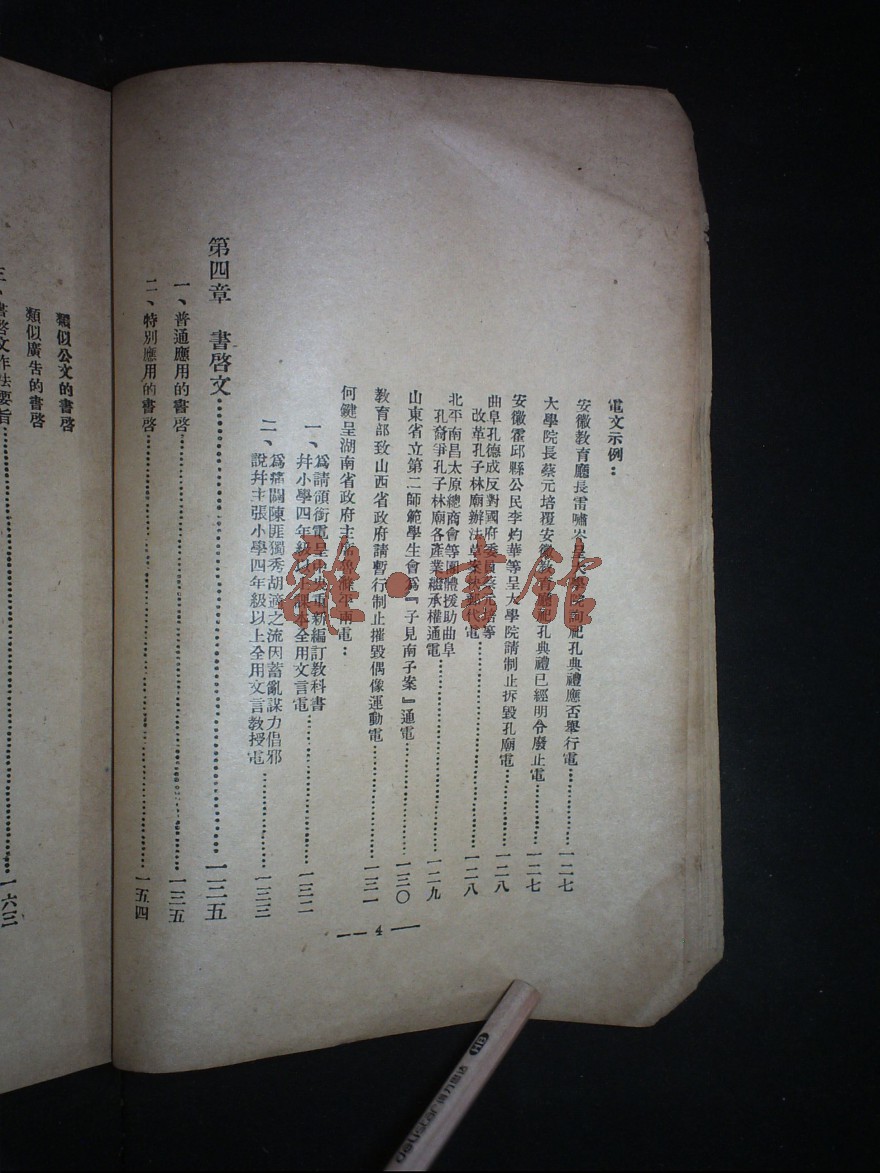 電文示例：
安徽教育廳長雷嘯岑呈大學院詢祀孔典禮應否舉行電……一二七
大學院長蔡元培覆安徽教育廳祀孔典禮已經明令廢止電……一二七
安徽霍邱縣公民李灼華等呈大學院請制止拆毀孔廟電……一二八
曲阜孔德成反對國府委員蔡元培等
改革孔子林廟辦法草案快郵代電……一二八
北平南昌太原總商會等團體援助曲阜
孔裔爭孔子林廟各產業繼承權通電……一二九
山東省立第二師範學生會爲『子見南子案』通電……一三〇
教育部致山西省政府請暫行制止摧毀偶像運動電……一三一
何鍵呈湖南省政府主席魯滌平兩電：
一、爲請領銜電呈中央重新編訂教科書
幷小學四年級以上課本全用文言電……一三二
二、爲痛闢陳匪獨秀胡適之流因蓄亂謀力倡邪
說幷主張小學四年級以上全用文言教授電……一三三
第四章　書啓文……一三五
一、普通應用的書啓……一三五
二、特別應用的書啓……一五四
—— 4 —
類似公文的書啓
類似廣告的書啓
三、書啓文作法要旨……一六三
雜·書館
HB